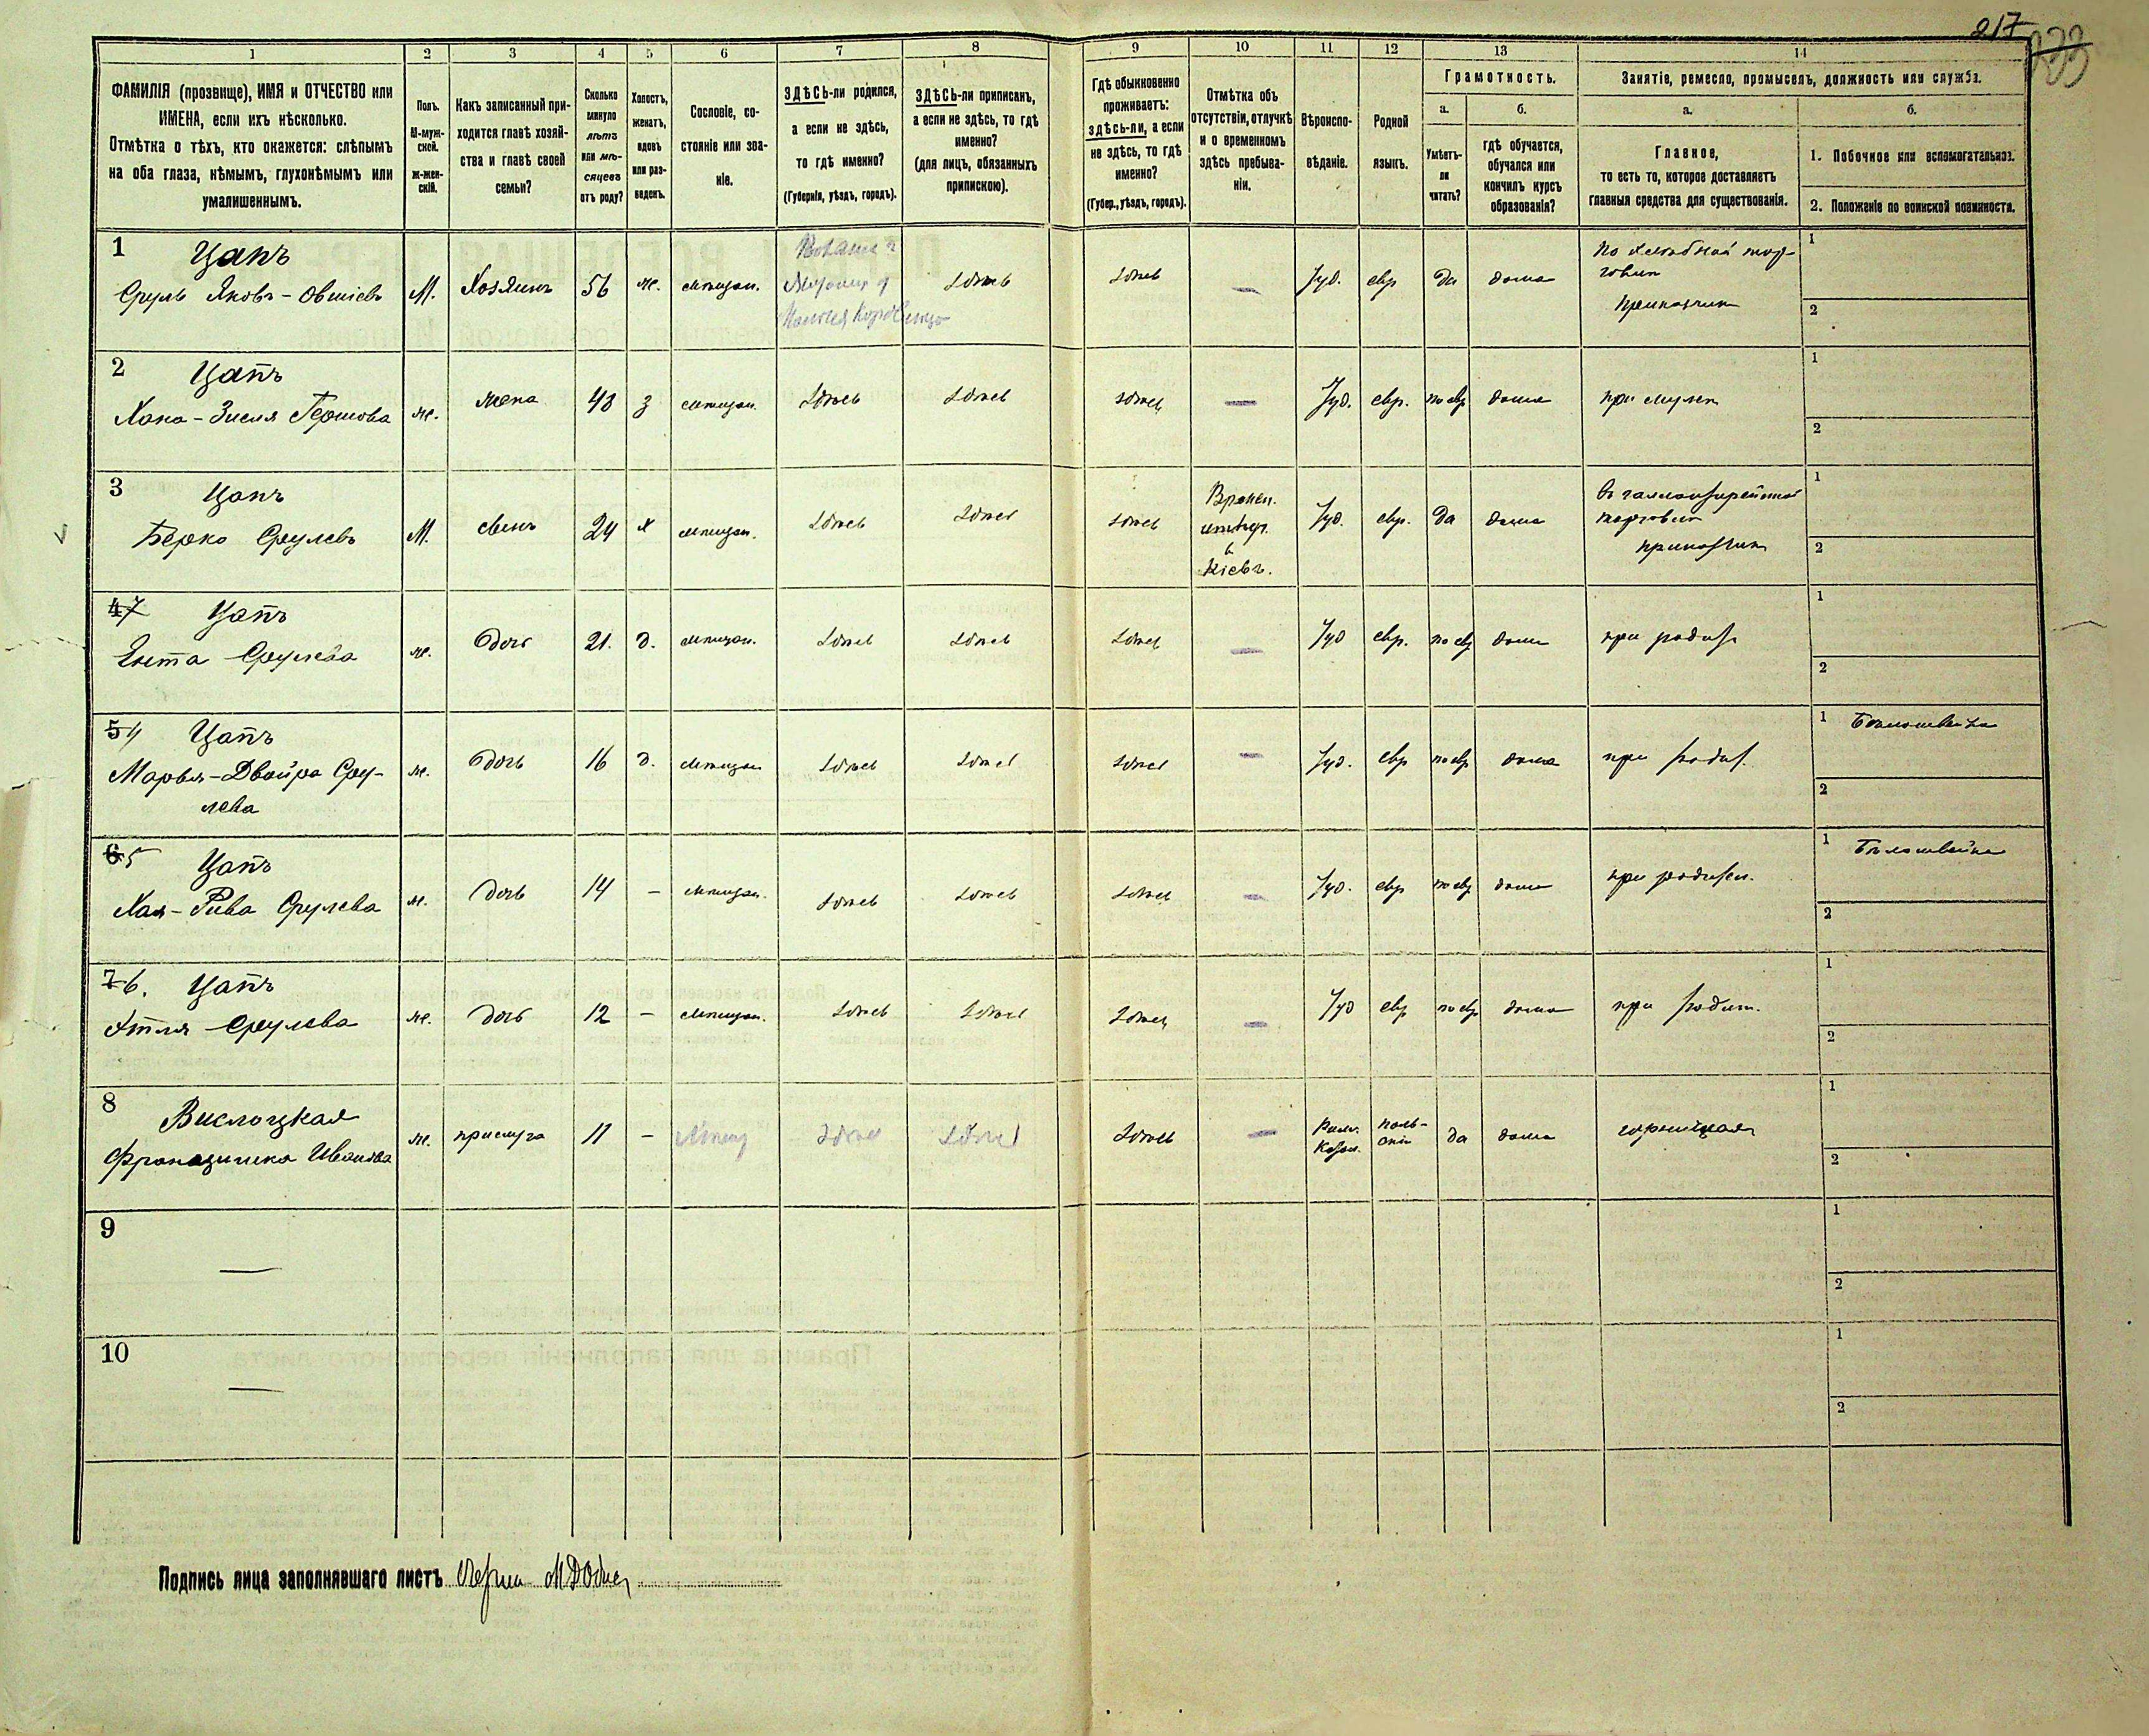 217
233
1 2 3 4 5 6 7 8 9 10 11 12 13 14
ФАМИЛІЯ (прозвище), ИМЯ и ОТЧЕСТВО или
ИМЕНА, если ихъ нѣсколько.
Отмѣтка о тѣхъ, кто окажется: слѣпымъ
на оба глаза, нѣмымъ, глухонѣмымъ или
умалишеннымъ.
Полъ.
М-муж-
ской.
Ж-жен-
скій.
Какъ записанный при-
ходится главѣ хозяй-
ства и главѣ своей
семьи?
Сколько
минуло
лѣтъ
или мѣ-
сяцевъ
отъ роду?
Холостъ,
женатъ,
вдовъ
или раз-
веденъ.
Сословіе, со-
стояніе или зва-
ніе.
ЗДѢСЬ-ли родился,
а если не здѣсь,
то гдѣ именно?
(Губернія, уѣздъ, городъ).
ЗДѢСЬ-ли приписанъ,
а если не здѣсь, то гдѣ
именно?
(для лицъ, обязанныхъ
припискою).
Гдѣ обыкновенно
проживаетъ:
здѣсь-ли, а если
не здѣсь, то гдѣ
именно?
(Губер., уѣздъ, городъ).
Отмѣтка объ
отсутствіи, отлучкѣ
и о временномъ
здѣсь пребыва-
ніи.
Вѣроиспо-
вѣданіе.
Родной
языкъ.
Грамотность.
а.
Умѣетъ-
ли
читать?
б.
гдѣ обучается,
обучался или
кончилъ курсъ
образованія?
Занятіе, ремесло, промыселъ, должность или служба.
а.
Главное,
то есть то, которое доставляетъ
главныя средства для существованія.
б.
1. Побочное или вспомогательное.
2. Положеніе по воинской повинности.
1 Цапъ
Сруль Яковъ-Овшіевъ М. Хозяинъ 56 ж. мѣщан. Здѣсь Здѣсь — Іуд. евр да дома
По хлѣбной тор-
говли
Приказчик
1
2
2 Цапъ
Хана-Зисля Гершова ж. жена 43 з мѣщан. Здѣсь Здѣсь здѣсь — Іуд. евр. по евр дома при муже
1
2
3 Цапъ
Берко Срулевъ М. сынъ 24 х мѣщан. Здѣсь Здѣсь здѣсь
Времен.
отсут.
в
Кіевъ.
Іуд. евр. да дома
въ галантерейной
торговли
приказчик
1
2
4 7 Цапъ
Ента Срулева ж. дочь 21. д. мѣщан. Здѣсь Здѣсь Здѣсь — Іуд евр. по евр дома при родит
1
2
5 4 Цапъ
Марья-Двойра Сру-
лева
ж. дочь 16 д. мѣщан Здѣсь Здѣсь здѣсь — Іуд. евр по евр дома при родит.
1 Бѣлошвейка
2
6 5 Цапъ
Хая-Рива Срулева ж. дочь 14 — мѣщан. Здѣсь Здѣсь Здѣсь — Іуд. евр по евр дома при родител.
1 Бѣлошвейка
2
7 6. Цапъ
Этля Срулева ж. дочь 12 — мѣщан. Здѣсь Здѣсь Здѣсь — Іуд евр по евр дома при родит.
1
2
8 Вислоцкая
Францишка Иванова ж. прислуга 11 — мѣщ Здѣсь Здѣсь Здѣсь —
Рим.
Катол.
поль-
скій
да дома горничная
1
2
9
—
1
2
10
—
1
2
Подпись лица заполнявшаго листъ